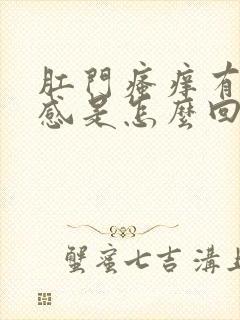 肛門瘙癢有
感是怎麼回
蟹蜜七吉溝上